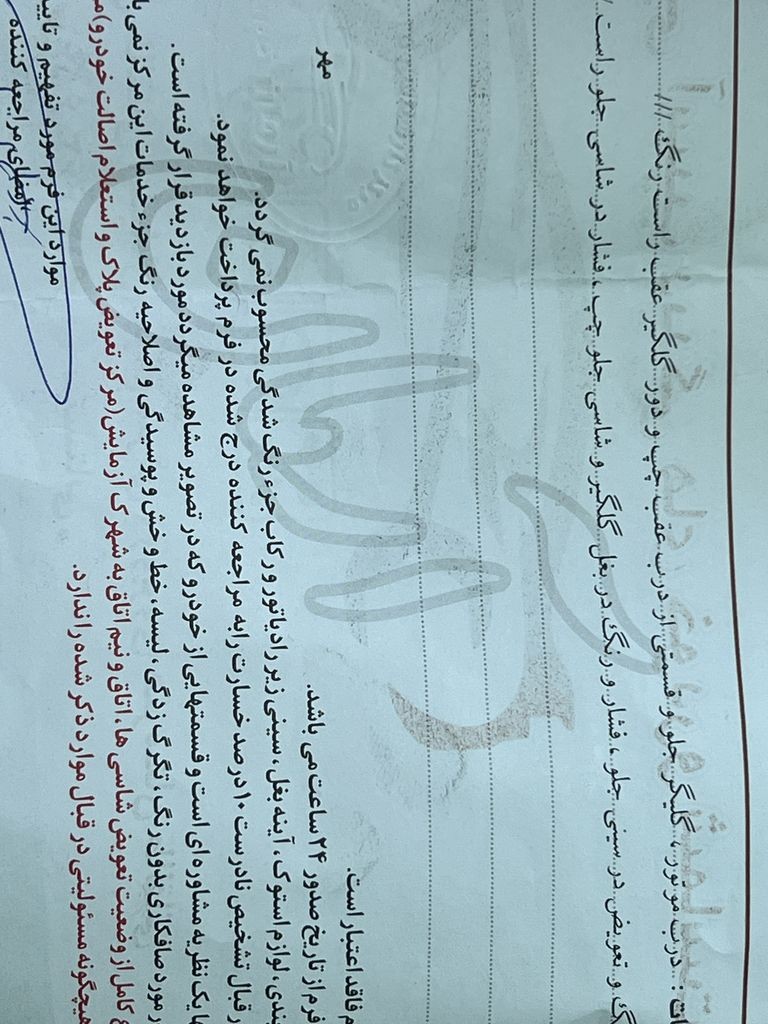 ت : درب موتور ، گلگیر جلو و قسمتی از درب عقب چپ و دور گلگیر عقب راست رنگ ///
گ و تعویض در سینی جلو ، فشار و رنگ در بغل گلگیر و شاسی جلو چپ ، فشار در شاسی جلو راست /
م فاقد اعتبار است.
مهر
فرم از تاریخ صدور ۲۴ ساعت می باشد.
بندی، لوازم استوک، آینه بغل، سینی زیر رادیاتور و رکاب جزء رنگ شدگی محسوب نمی گردد.
ر قبال تشخیص نادرست ۱۰ درصد خسارت را به مراجعه کننده درج شده در فرم پرداخت خواهد نمود.
ها یک نظریه مشاوره ای است و قسمتهایی از خودرو که در تصویر مشاهده میگردد مورد بازدید قرار گرفته است.
ر مورد صافکاری بدون رنگ، تگرگ زدگی، لیسه، خط و خش و پوسیدگی و اصلاحیه رنگ جزء خدمات این مرکز نمی با
ع کامل از وضعیت تعویض شاسی ها، اتاق و نیم اتاق به شهرک آزمایش(مرکز تعویض پلاک و استعلام اصالت خودرو)م
هیچگونه مسئولیتی در قبال موارد ذکر شده را ندارد.
موارد این فرم مورد تفهیم و تایید
امضای مراجعه کننده